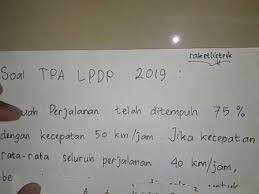 raketlistrik
Soal TPA LPDP 2019 :
uah Perjalanan telah ditempuh 75 %
dengan kecepatan 50 km/jam. Jika kecepatan
rata-rata seluruh perjalanan 40 km/jam,
be